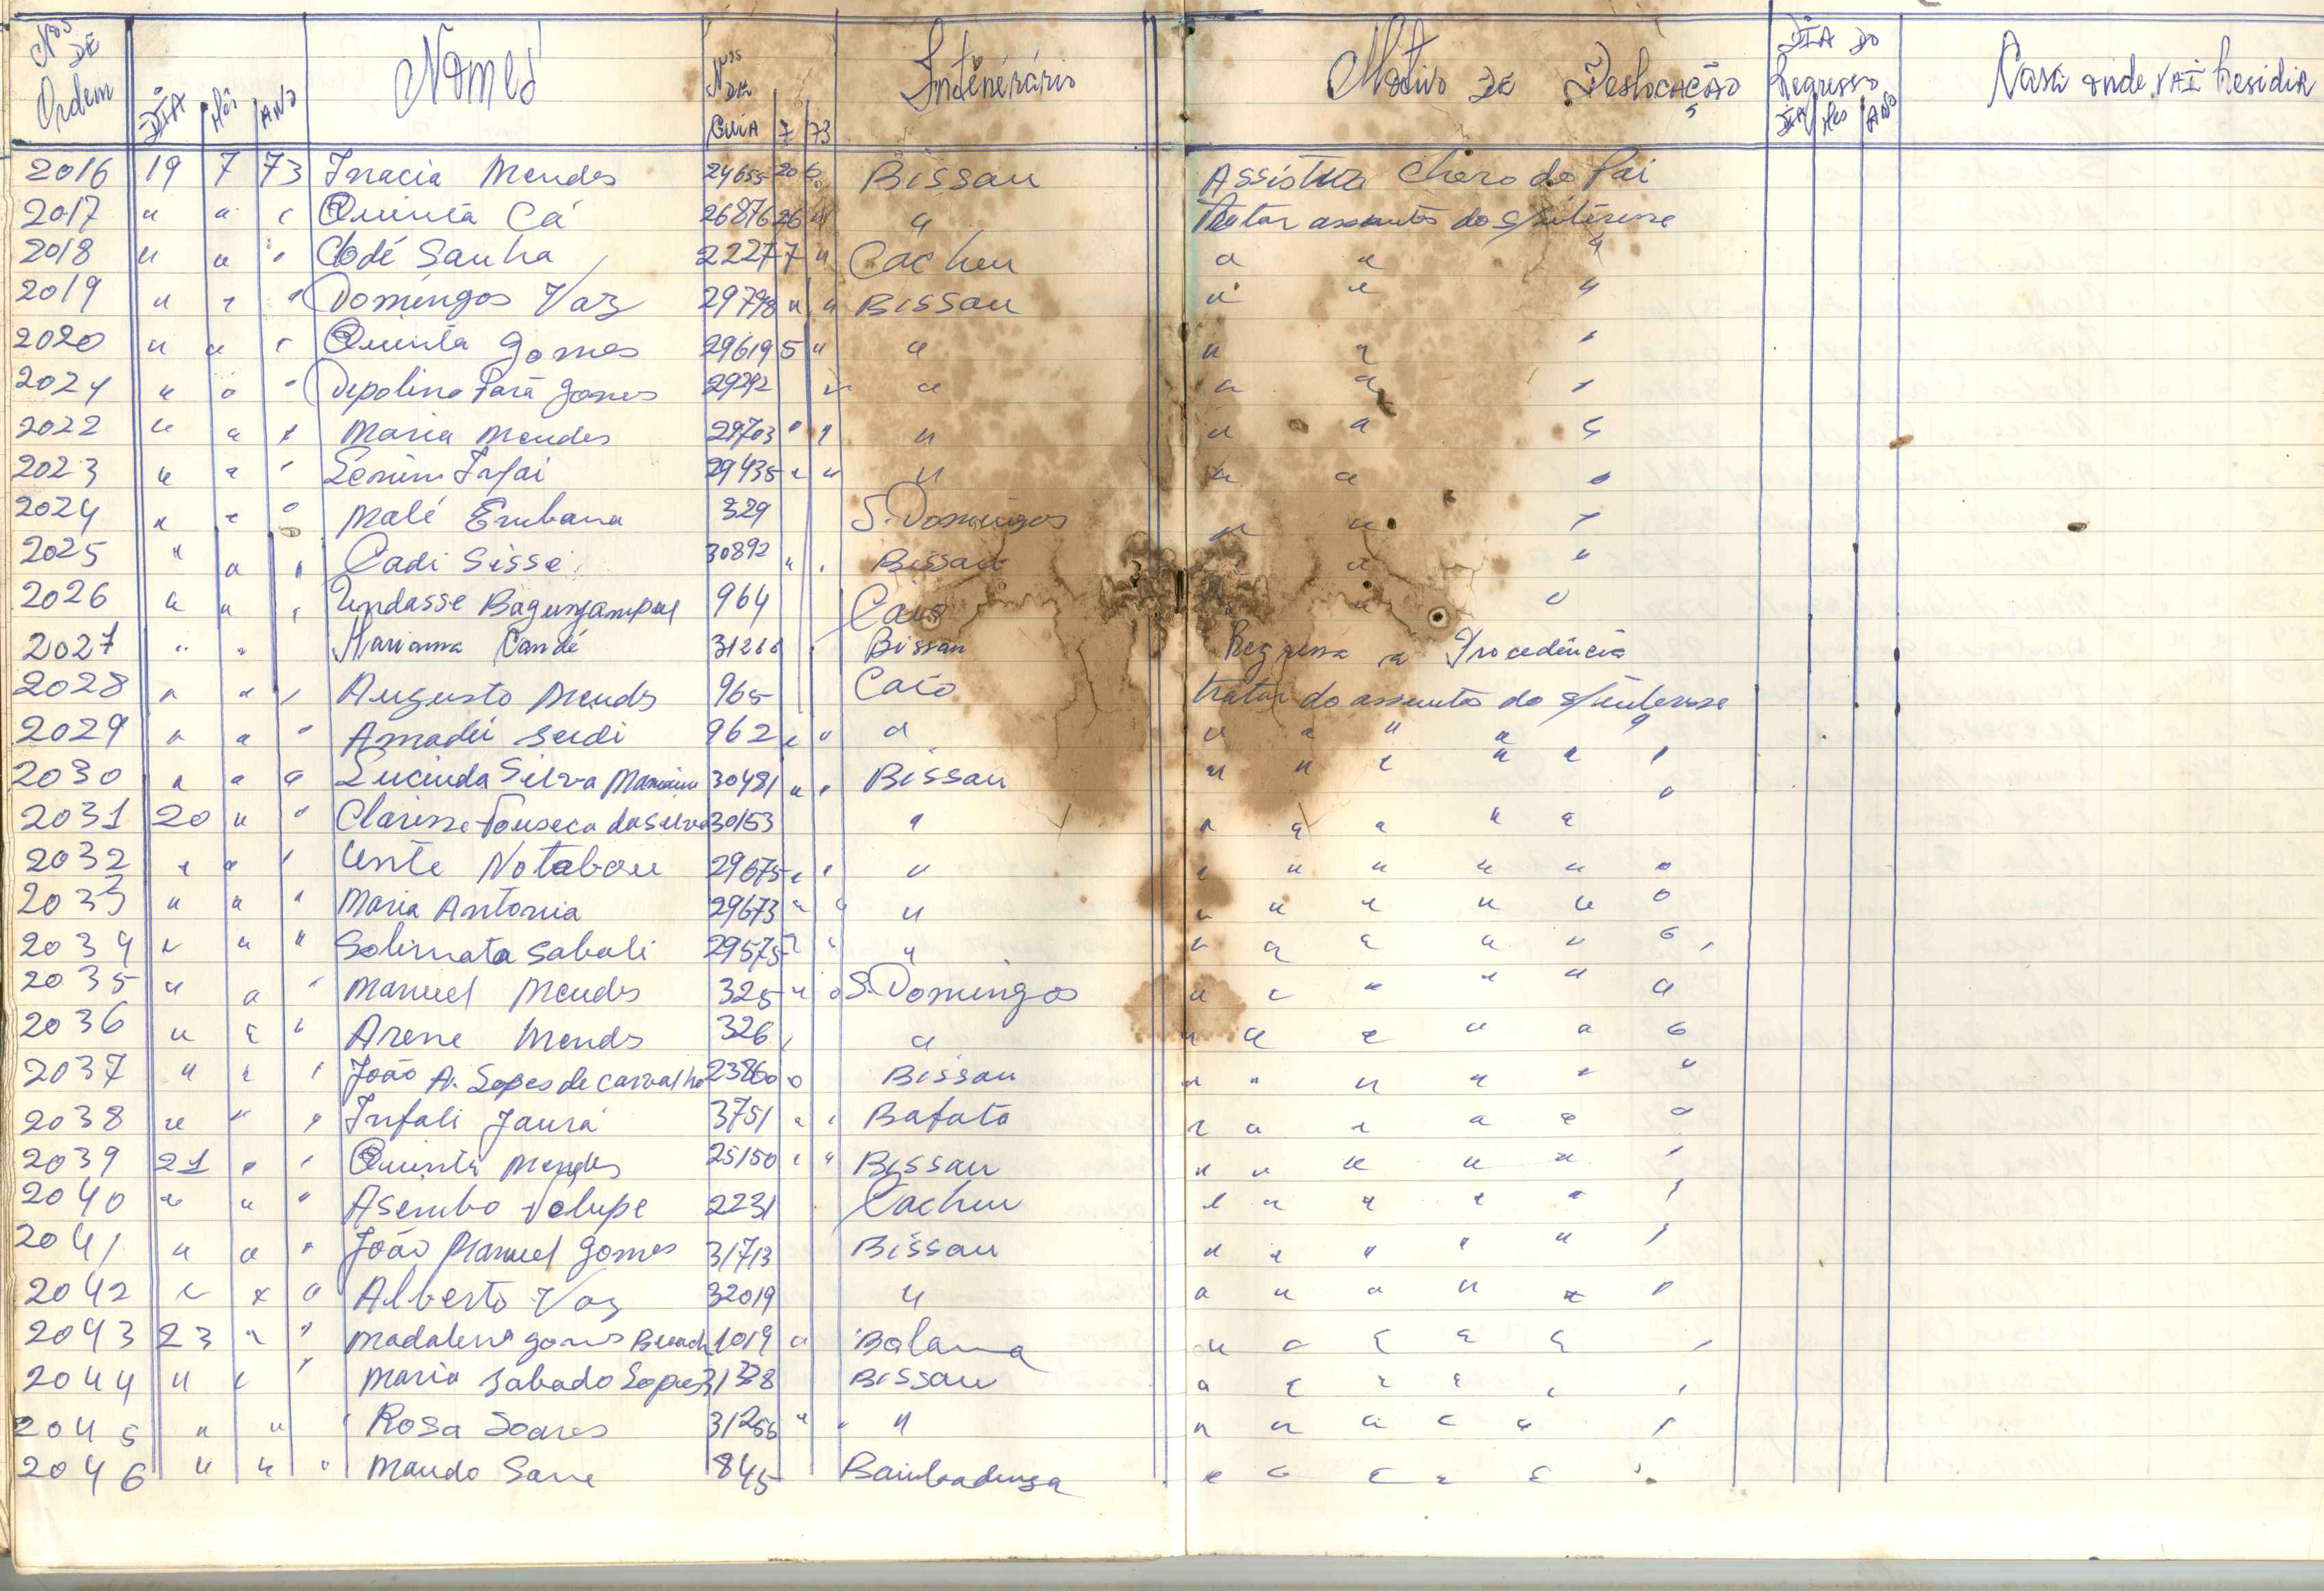 Nos DE Ordem DIA Mês ANO Nomes Nos DE GUIA 7 73 Intinérário Motivo DE Deslocação DIA DO Regresso DIA Mes ANO Casa onde VAI Residir
2016 19 7 73 Inacia Mendes 24655 20 6 Bissau Assistir Choro do Pai
2017 " " " Quinta Cá 26876 26 " " Tratar assuntos do s/interesse
2018 " " " Codé Sanha 2227 7 " Cacheu " " "
2019 " " " Domingos Vaz 29798 " " Bissau " " "
2020 " " " Quinta Gomes 29619 5 " " " " "
2021 " " " Gomes 29292 " " " " "
2022 " " " Maria Mendes 29703 " " " " " "
2023 " " " 29435 " " " " " "
2024 " " " Malé Embana 329 S. Domingos " " "
2025 " " " Cadi Sisse 30892 " " Bissau " "
2026 " " " Undasse 964 Caió " "
2027 " " Mariama Candé Bissau Regressa á Procedência
2028 " " " Augusto Mends 965 Caió tratar do assunto do s/interesse
2029 " " " Amadú Seidi 962 " " " " " " " "
2030 " " " Lucinda Silva 30481 " " Bissau " " " " " "
2031 20 " " Clarisse Fonseca da Silva 30153 " " " " " " "
2032 " " " Unte Notabou 29675 " " " " " " " " "
2033 " " " Maria Antonia 29673 " " " " " " " " "
2034 " " " Solimata Sabali 29575 " " " " " " " " "
2035 " " " Manuel Mendes 325 " " S. Domingos " " " " " "
2036 " " " Arene Mends 326 " " " " " " " "
2037 " " " João A. Lopes de Carvalho 23860 " Bissau " " " " " "
2038 " " " Infali Jaurá 3751 " " Bafata " " " " " "
2039 21 " " Quinta Mendes 25150 " " Bissau " " " " " "
2040 " " " Asembo 2231 Cacheu " " " " " "
2041 " " " João Manuel Gomes 31713 Bissau " " " " " "
2042 " " " Alberto Vaz 32019 " " " " " " "
2043 23 " " Madalena Gomes 1019 " Bolama " " " " " "
2044 " " " Maria Sabado Lopes 31328 Bissau " " " " " "
2045 " " " Rosa Soares 31256 " " " " " " " " "
2046 " " " Mando Sane 845 Bambadinga " " " " " "